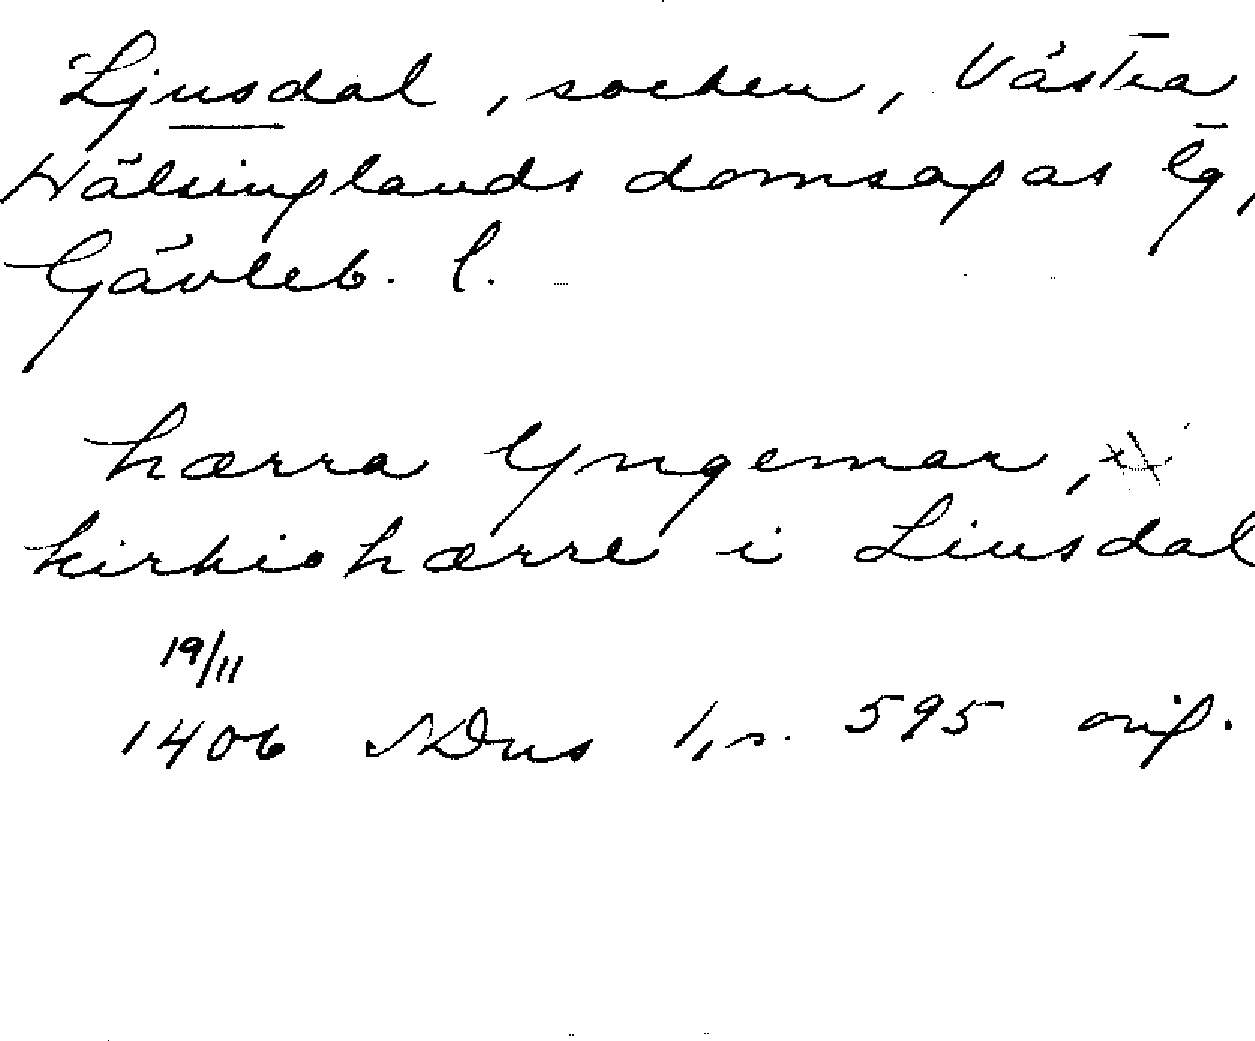 Ljusdal, socken, Västra
Hälsinglands domsagas tg,
Gävleb. l.
hærra Yngemar,
kirkiohærre i Liusdal
19/11
1406 SDns 1, s. 595 orig.